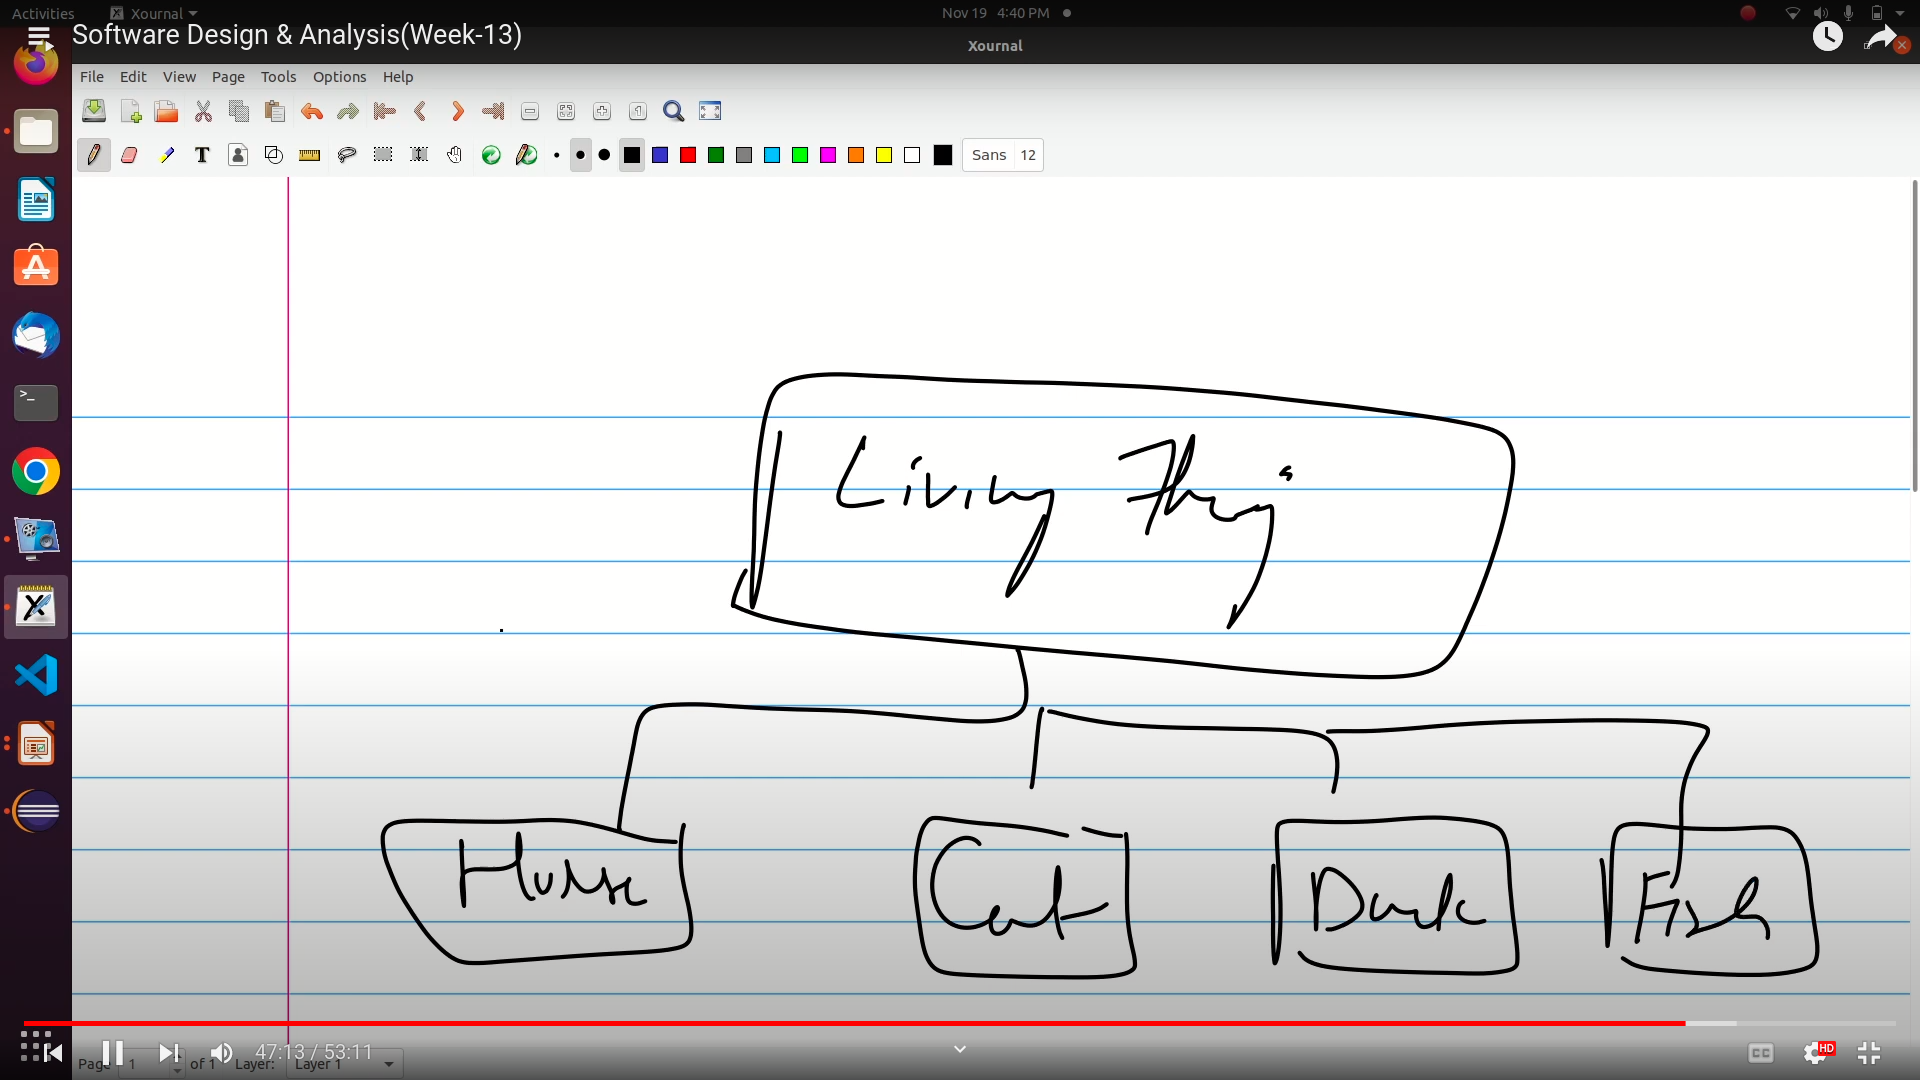 Activities Xournal Nov 19 4:40 PM
Software Design & Analysis(Week-13)
Xournal
File Edit View Page Tools Options Help
T Sans 12
Living Thing
Horse Cat Duck Fish
47:13 / 53:11 CC HD
Page 1 of 1 Layer: Layer 1